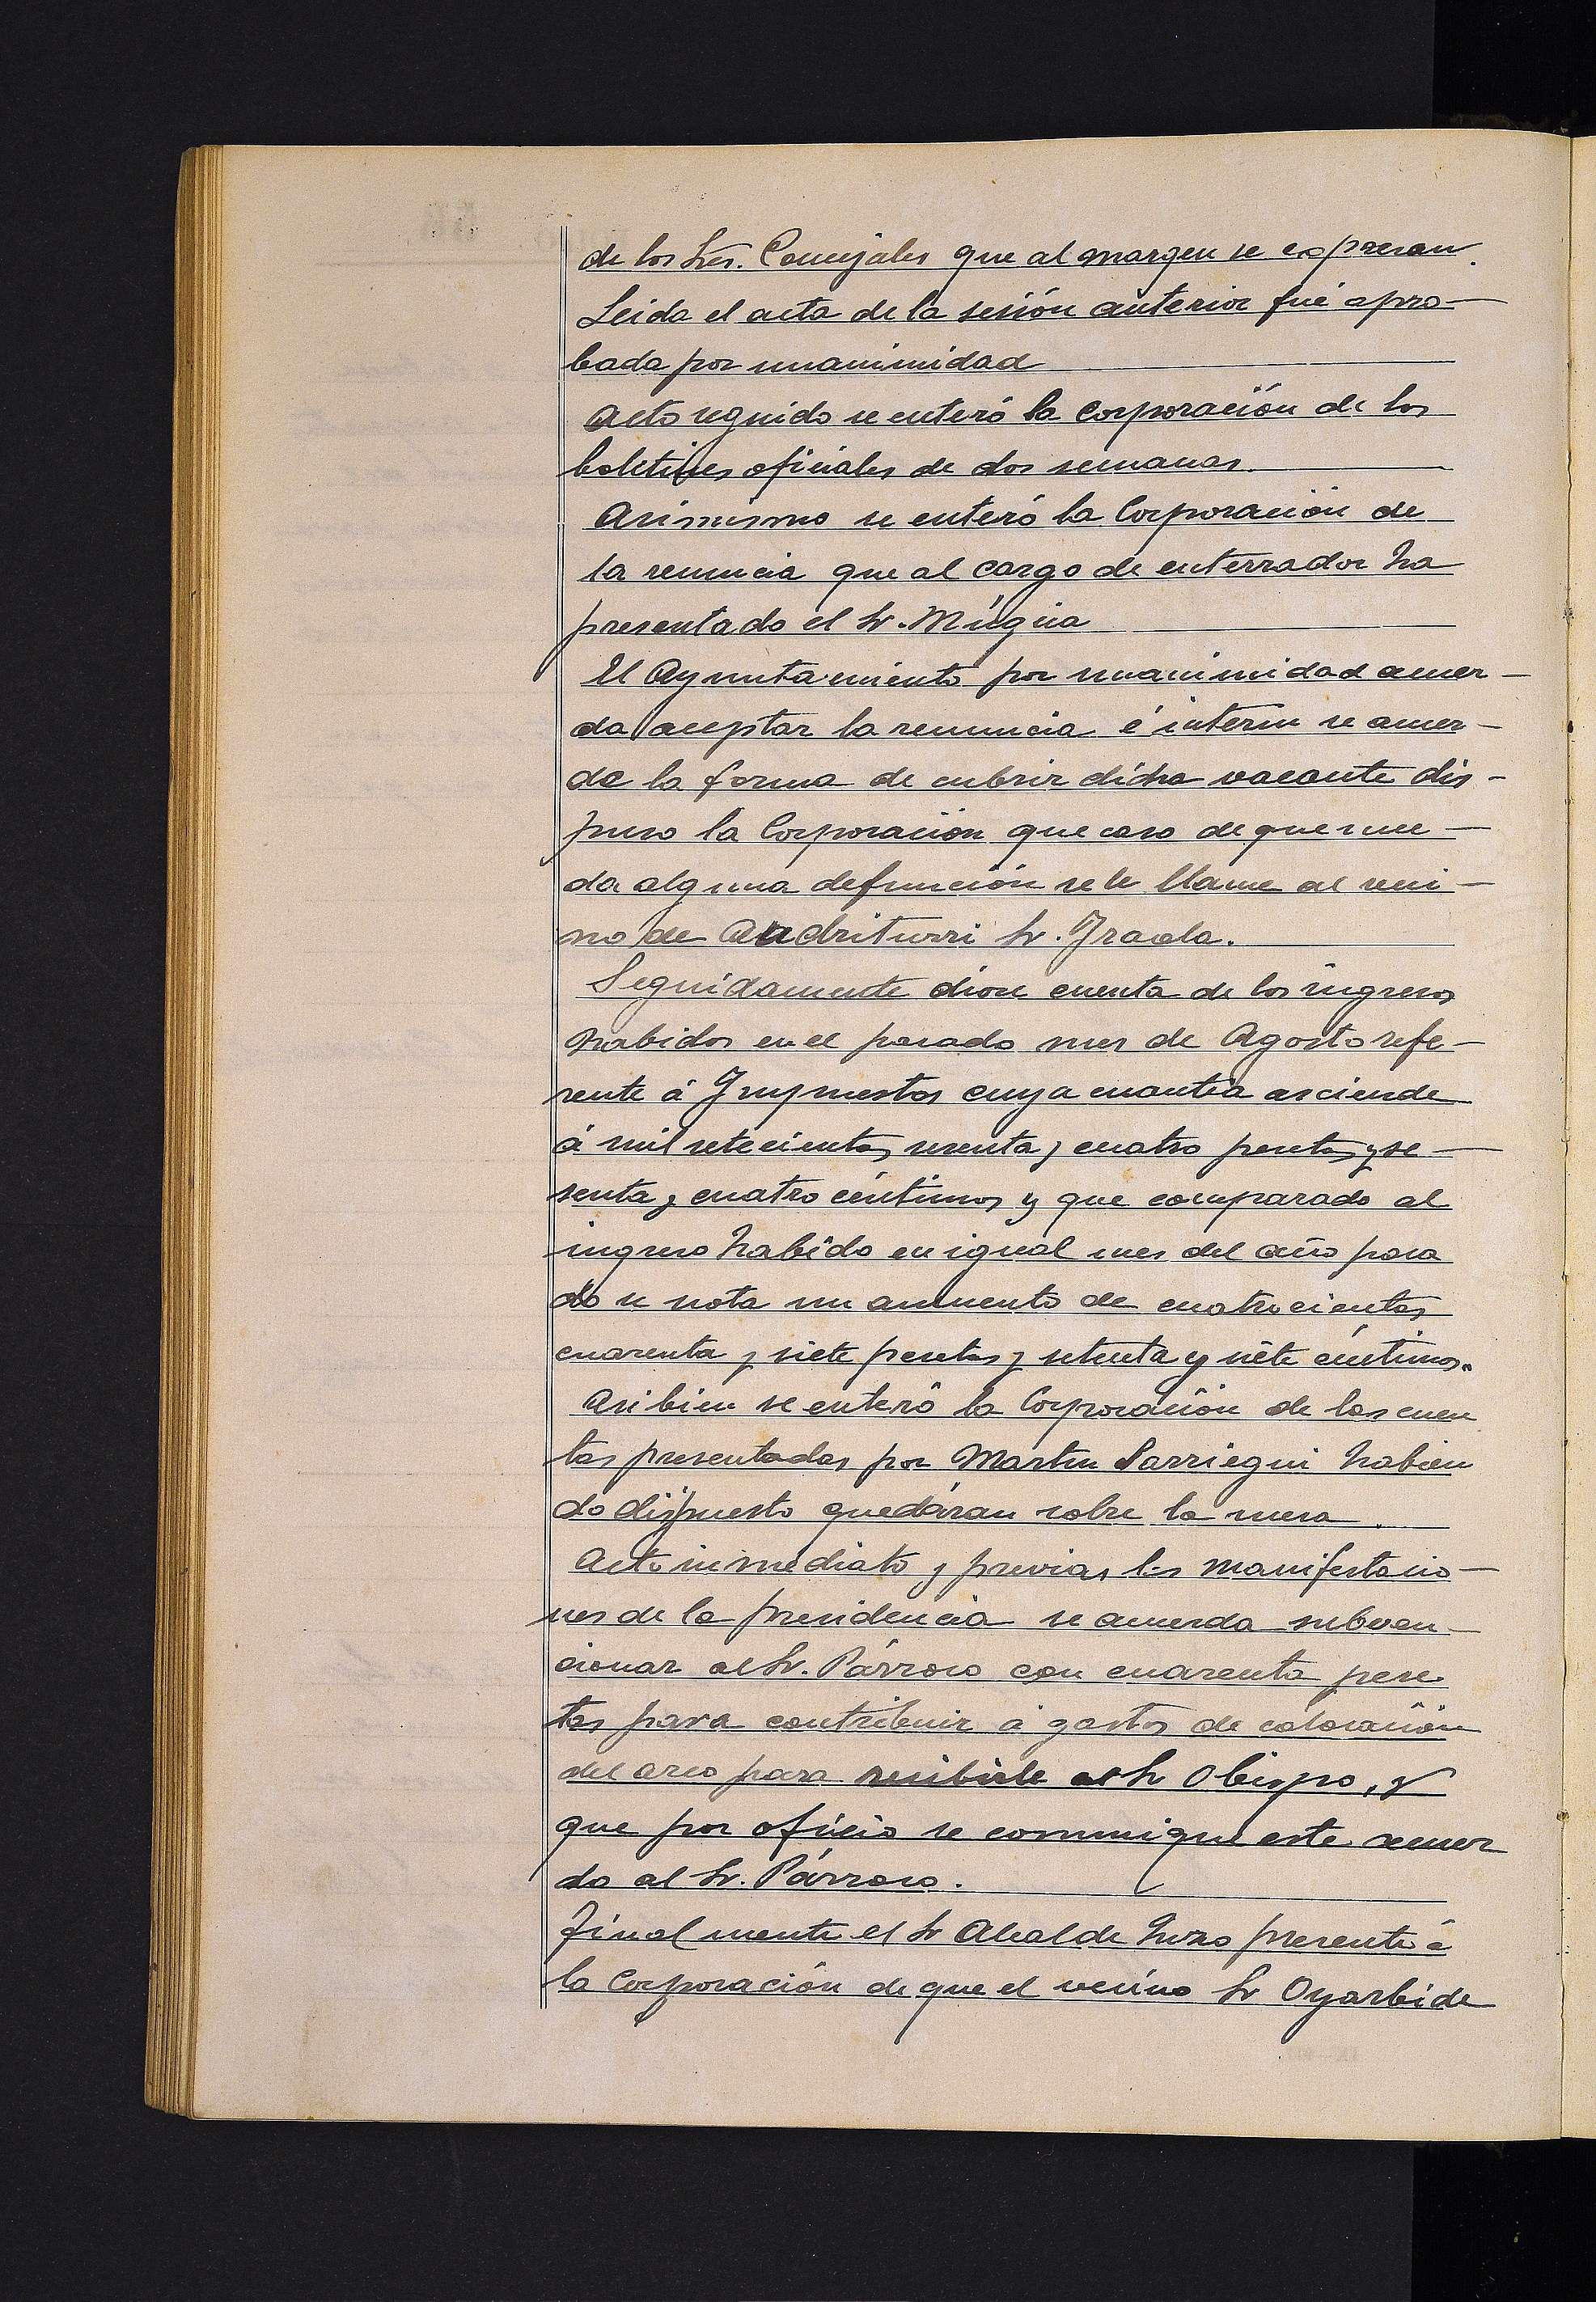 de los Sres. Concejales que al margen se expresan.
Leida el acta de la sesión anterior fué apro-
bada por unanimidad
Acto seguido se enteró la Corporación de los
boletines oficiales de dos semanas.
Asimismo se enteró la Corporación de
la renuncia que al cargo de enterrador ha
presentado el Sr. Múgica
El Ayuntamiento por unanimidad acuer-
da aceptar la renuncia é interin se acuer-
de la forma de cubrir dicha vacante dis-
puso la Corporación que caso de que suce-
da alguna defunción se le llame al veci-
no de Andriturri Sr. Iraola.
Seguidamente dióse cuenta de los ingresos
habidos en el pasado mes de Agosto refe-
rente á Impuestos cuya cuantia asciende
á mil setecientas sesenta y cuatro pesetas y se-
senta y cuatro céntimos y que comparado al
ingreso habido en igual mes del año pasa
do se nota un aumento de cuatrocientas
cuarenta y siete pesetas y setenta y siete céntimos.
Asi bien se enteró la Corporación de las cuen
tas presentadas por Martin Sarriegui habien
do dispuesto quedáran sobre la mesa.
Acto inmediato y previas las manifestacio-
nes de la presidencia se acuerda subven-
cionar al Sr. Párroco con cuarenta pese
tas para contribuir á gastos de colocación
del arco para recibirle al Sr Obispo, y
que por oficio se comunique este acuer
do al Sr. Párroco.
Finalmente el Sr Alcalde hizo presente á
la Corporación de que el vecino Sr Oyarbide